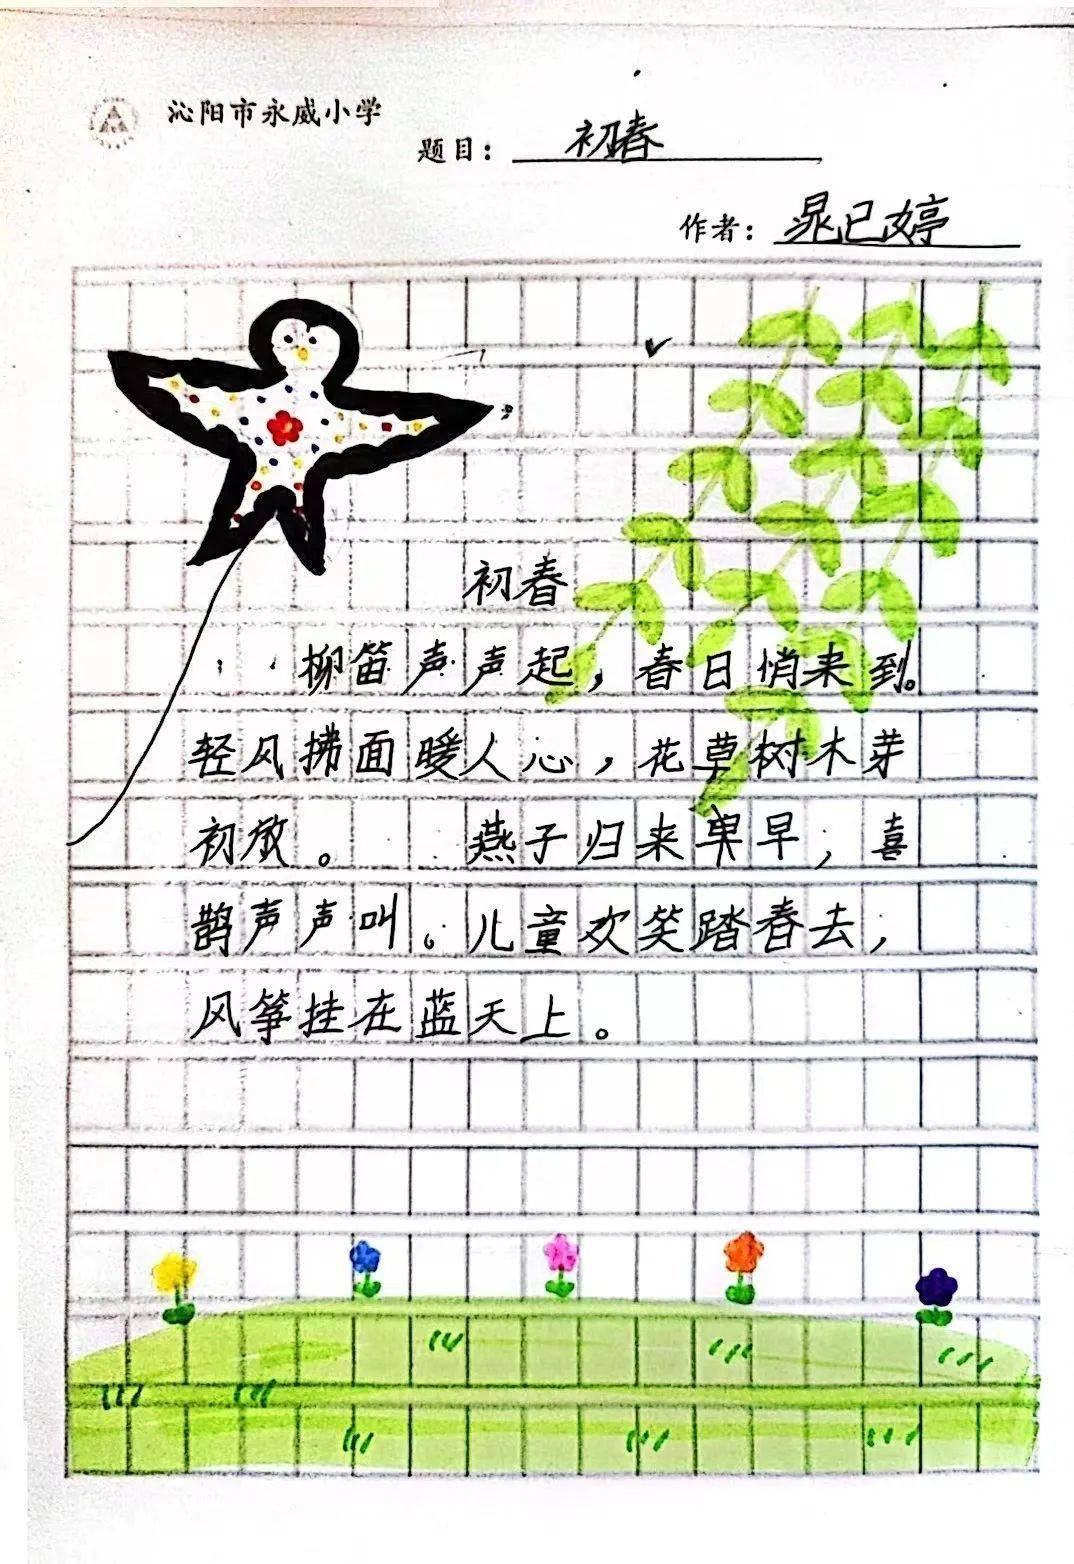 沁阳市永威小学
题目：初春
作者：晁已婷
初春
柳笛声声起，春日悄来到。
轻风拂面暖人心，花草树木芽
初放。 燕子归来早早，喜
鹊声声叫。儿童欢笑踏春去，
风筝挂在蓝天上。